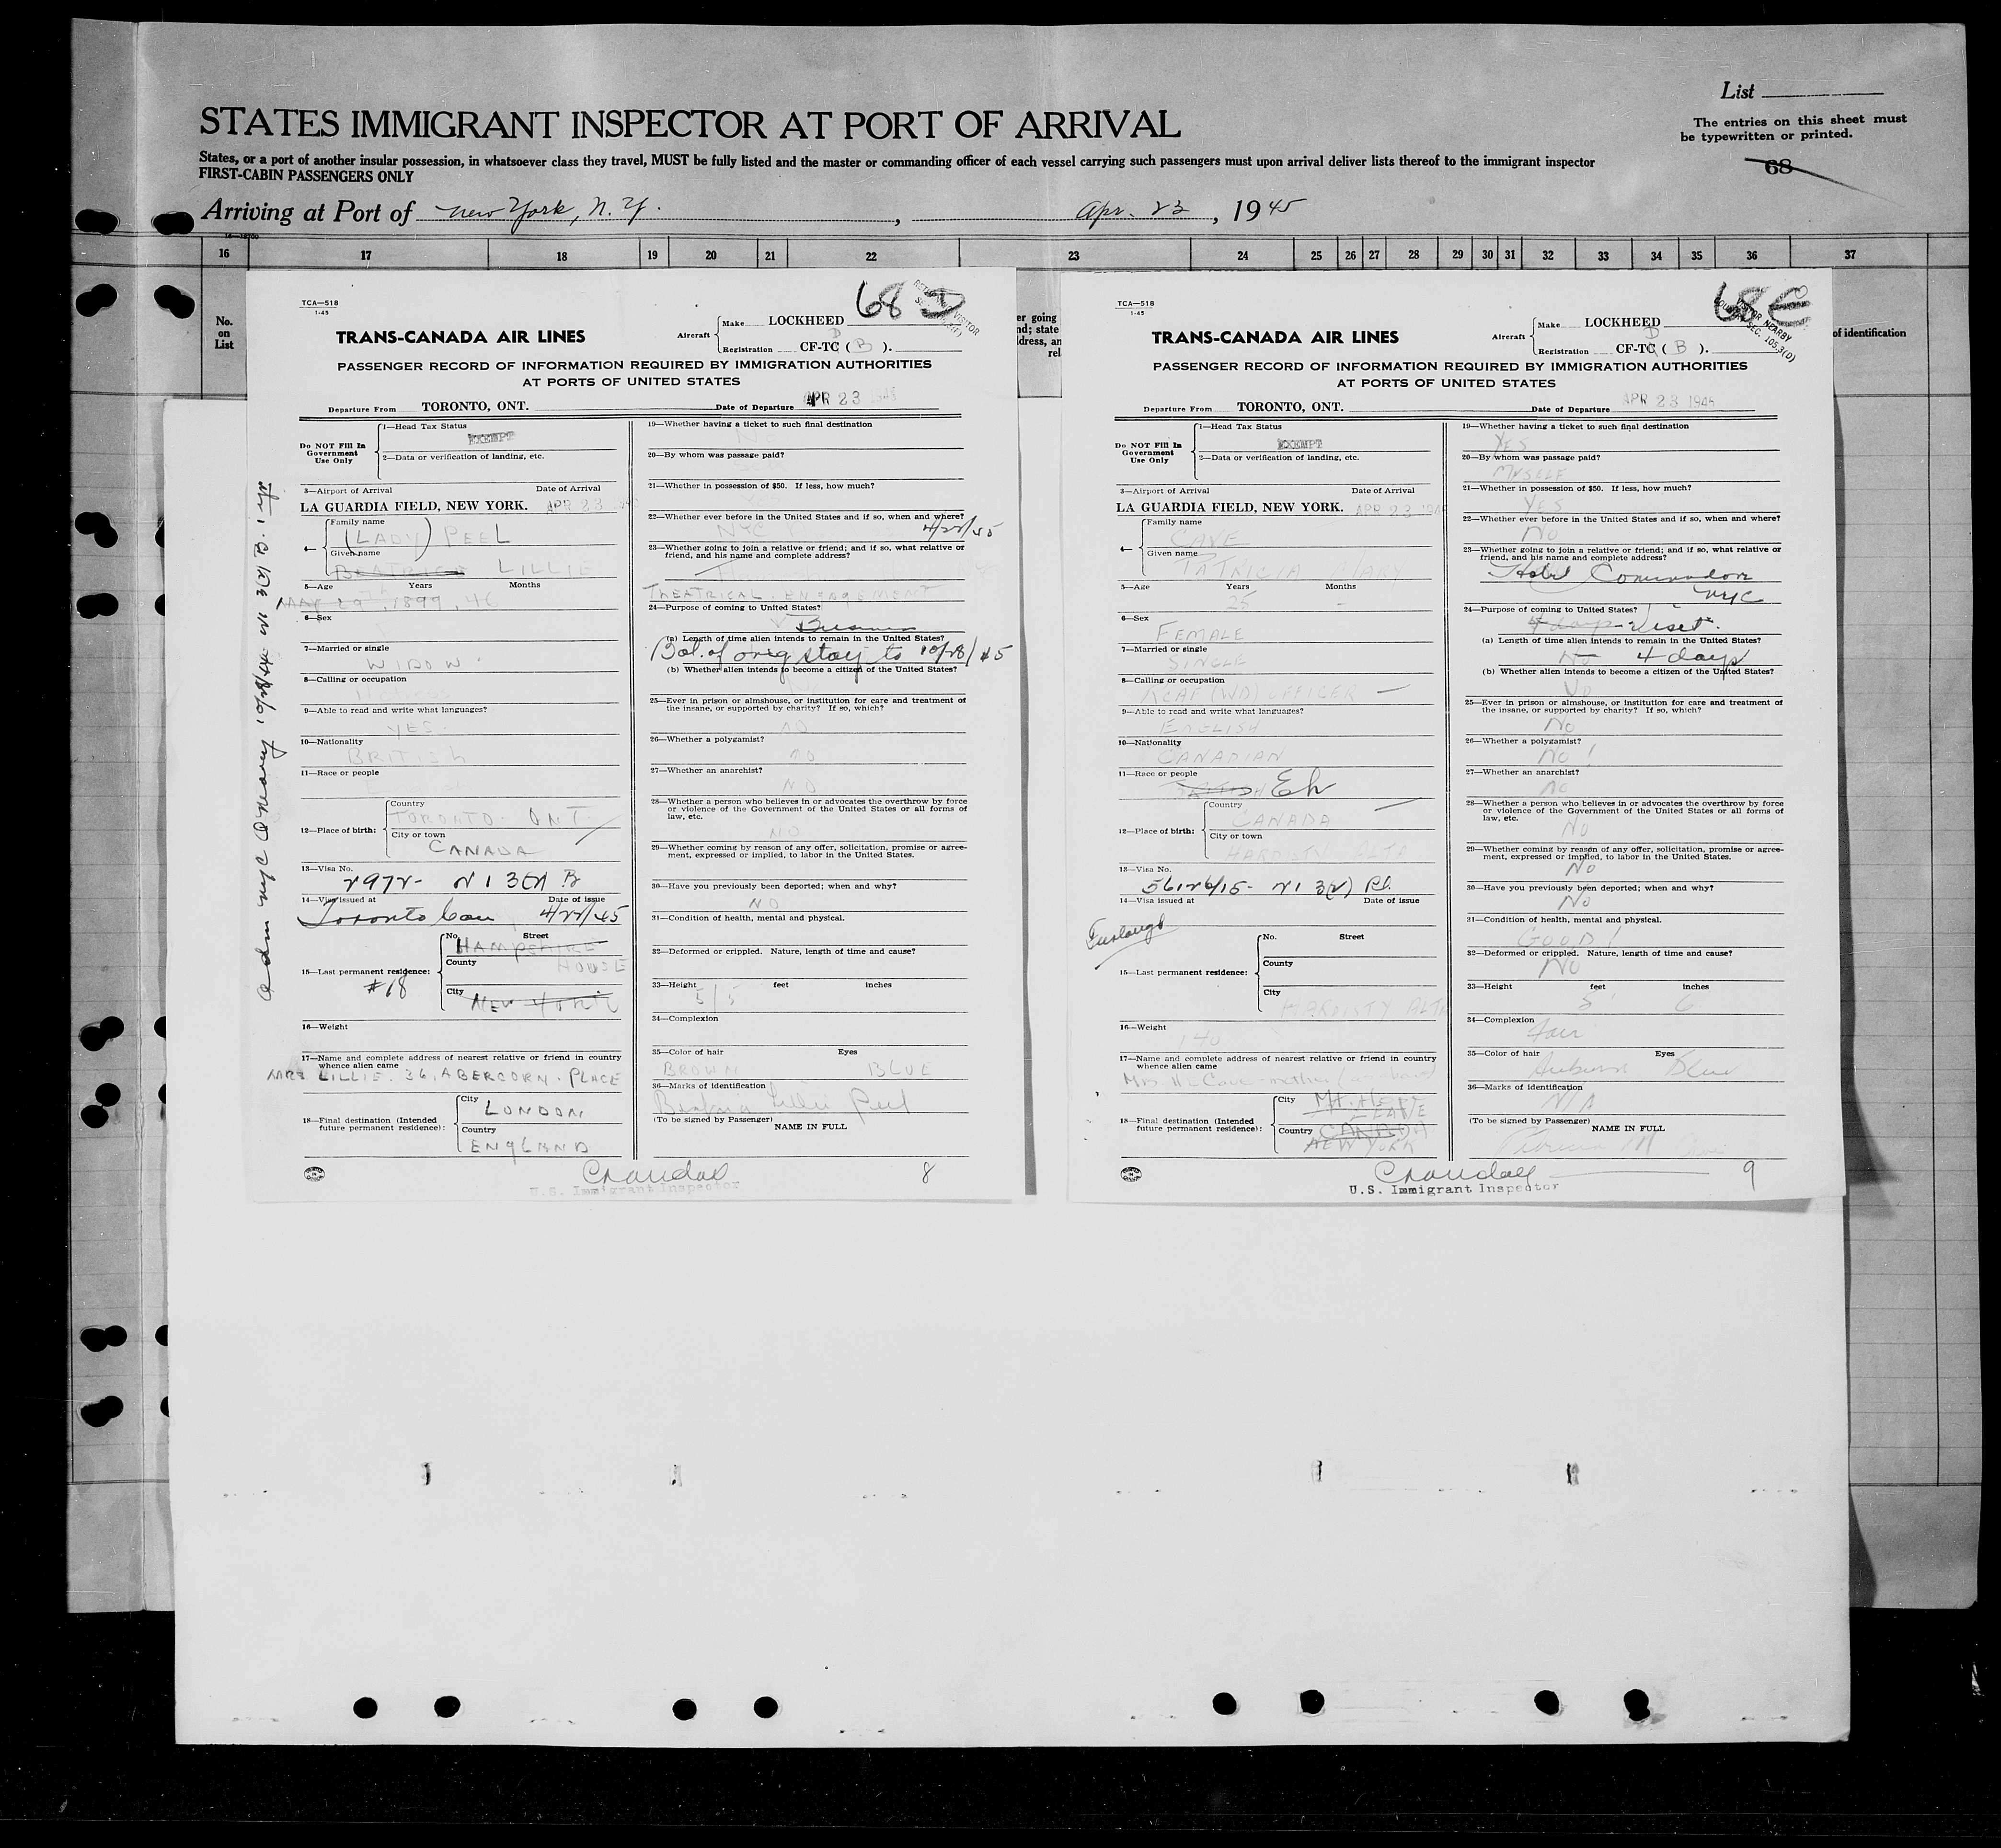 List
The entries on this sheet must
be typewritten or printed.
68
STATES IMMIGRANT INSPECTOR AT PORT OF ARRIVAL
States, or a port of another insular possession, in whatsoever class they travel, MUST be fully listed and the master or commanding officer of each vessel carrying such passengers must upon arrival deliver lists thereof to the immigrant inspector
FIRST-CABIN PASSENGERS ONLY
Arriving at Port of New York, N. Y. , Apr. 23 , 1945
16 17 18 19 20 21 22 23 24 25 26 27 28 29 30 31 32 33 34 35 36 37
No.
on
List
of identification
TCA—518
1-45
68 D
TRANS-CANADA AIR LINES
Aircraft Make LOCKHEED
Registration CF-TC ( B ).
PASSENGER RECORD OF INFORMATION REQUIRED BY IMMIGRATION AUTHORITIES
AT PORTS OF UNITED STATES
Departure From TORONTO, ONT. Date of Departure APR 23 1945
Do NOT Fill In
Government
Use Only
1—Head Tax Status
EXEMPT
2—Data or verification of landing, etc.
3—Airport of Arrival Date of Arrival
LA GUARDIA FIELD, NEW YORK. APR 23
4— Family name
(LADY) PEEL
Given name
BEATRICE LILLIE
5—Age Years Months
MAY 29, 1899, 46
6—Sex
7—Married or single
WIDOW
8—Calling or occupation
9—Able to read and write what languages?
YES
10—Nationality
BRITISH
11—Race or people
12—Place of birth: Country
TORONTO. ONT.
City or town
CANADA
13—Visa No.
14—Visa issued at Date of issue
Toronto Can 4/22/45
15—Last permanent residence: No. Street
HAMPSHIRE
County
HOUSE
#18
City
NEW YORK
16—Weight
17—Name and complete address of nearest relative or friend in country
whence alien came
MRS LILLIE. 36, ABERCORN. PLACE
18—Final destination (Intended
future permanent residence): City
LONDON
Country
ENGLAND
19—Whether having a ticket to such final destination
20—By whom was passage paid?
21—Whether in possession of $50. If less, how much?
22—Whether ever before in the United States and if so, when and where?
NYC 4/22/45
23—Whether going to join a relative or friend; and if so, what relative or
friend, and his name and complete address?
THEATRICAL ENGAGEMENT
24—Purpose of coming to United States?
Business
(a) Length of time alien intends to remain in the United States?
Bal. of orig stay to 10/28/45
(b) Whether alien intends to become a citizen of the United States?
25—Ever in prison or almshouse, or institution for care and treatment of
the insane, or supported by charity? If so, which?
NO
26—Whether a polygamist?
NO
27—Whether an anarchist?
NO
28—Whether a person who believes in or advocates the overthrow by force
or violence of the Government of the United States or all forms of
law, etc.
NO
29—Whether coming by reason of any offer, solicitation, promise or agree-
ment, expressed or implied, to labor in the United States.
30—Have you previously been deported; when and why?
NO
31—Condition of health, mental and physical.
32—Deformed or crippled. Nature, length of time and cause?
33—Height feet inches
5/5
34—Complexion
35—Color of hair Eyes
BROWN BLUE
36—Marks of identification
Beatrice Lillie Peel
(To be signed by Passenger)
NAME IN FULL
Crandall 8
U.S. Immigrant Inspector
TCA—518
1-45
68 E
TRANS-CANADA AIR LINES
Aircraft Make LOCKHEED
Registration CF-TC ( B ).
PASSENGER RECORD OF INFORMATION REQUIRED BY IMMIGRATION AUTHORITIES
AT PORTS OF UNITED STATES
Departure From TORONTO, ONT. Date of Departure APR 23 1945
Do NOT Fill In
Government
Use Only
1—Head Tax Status
EXEMPT
2—Data or verification of landing, etc.
3—Airport of Arrival Date of Arrival
LA GUARDIA FIELD, NEW YORK. APR 23 194
4— Family name
CAVE
Given name
PATRICIA MARY
5—Age Years Months
25 –
6—Sex
FEMALE
7—Married or single
SINGLE
8—Calling or occupation
RCAF (WD) OFFICER
9—Able to read and write what languages?
ENGLISH
10—Nationality
CANADIAN
11—Race or people
12—Place of birth: Country
CANADA
City or town
HARDISTY ALTA
13—Visa No.
14—Visa issued at Date of issue
Furlough
15—Last permanent residence: No. Street
County
City
HARDISTY ALTA
16—Weight
140
17—Name and complete address of nearest relative or friend in country
whence alien came
18—Final destination (Intended
future permanent residence): City
Country CANADA
NEW YORK
19—Whether having a ticket to such final destination
YES
20—By whom was passage paid?
MYSELF
21—Whether in possession of $50. If less, how much?
YES
22—Whether ever before in the United States and if so, when and where?
NO
23—Whether going to join a relative or friend; and if so, what relative or
friend, and his name and complete address?
Hotel Commodore
NYC
24—Purpose of coming to United States?
4 days - visit.
(a) Length of time alien intends to remain in the United States?
No 4 days
(b) Whether alien intends to become a citizen of the United States?
No
25—Ever in prison or almshouse, or institution for care and treatment of
the insane, or supported by charity? If so, which?
No
26—Whether a polygamist?
No!
27—Whether an anarchist?
No
28—Whether a person who believes in or advocates the overthrow by force
or violence of the Government of the United States or all forms of
law, etc.
No
29—Whether coming by reason of any offer, solicitation, promise or agree-
ment, expressed or implied, to labor in the United States.
No
30—Have you previously been deported; when and why?
No
31—Condition of health, mental and physical.
GOOD!
32—Deformed or crippled. Nature, length of time and cause?
No
33—Height feet inches
5' 6
34—Complexion
Fair
35—Color of hair Eyes
Auburn Blue
36—Marks of identification
N/A
(To be signed by Passenger)
NAME IN FULL
Crandall 9
U.S. Immigrant Inspector